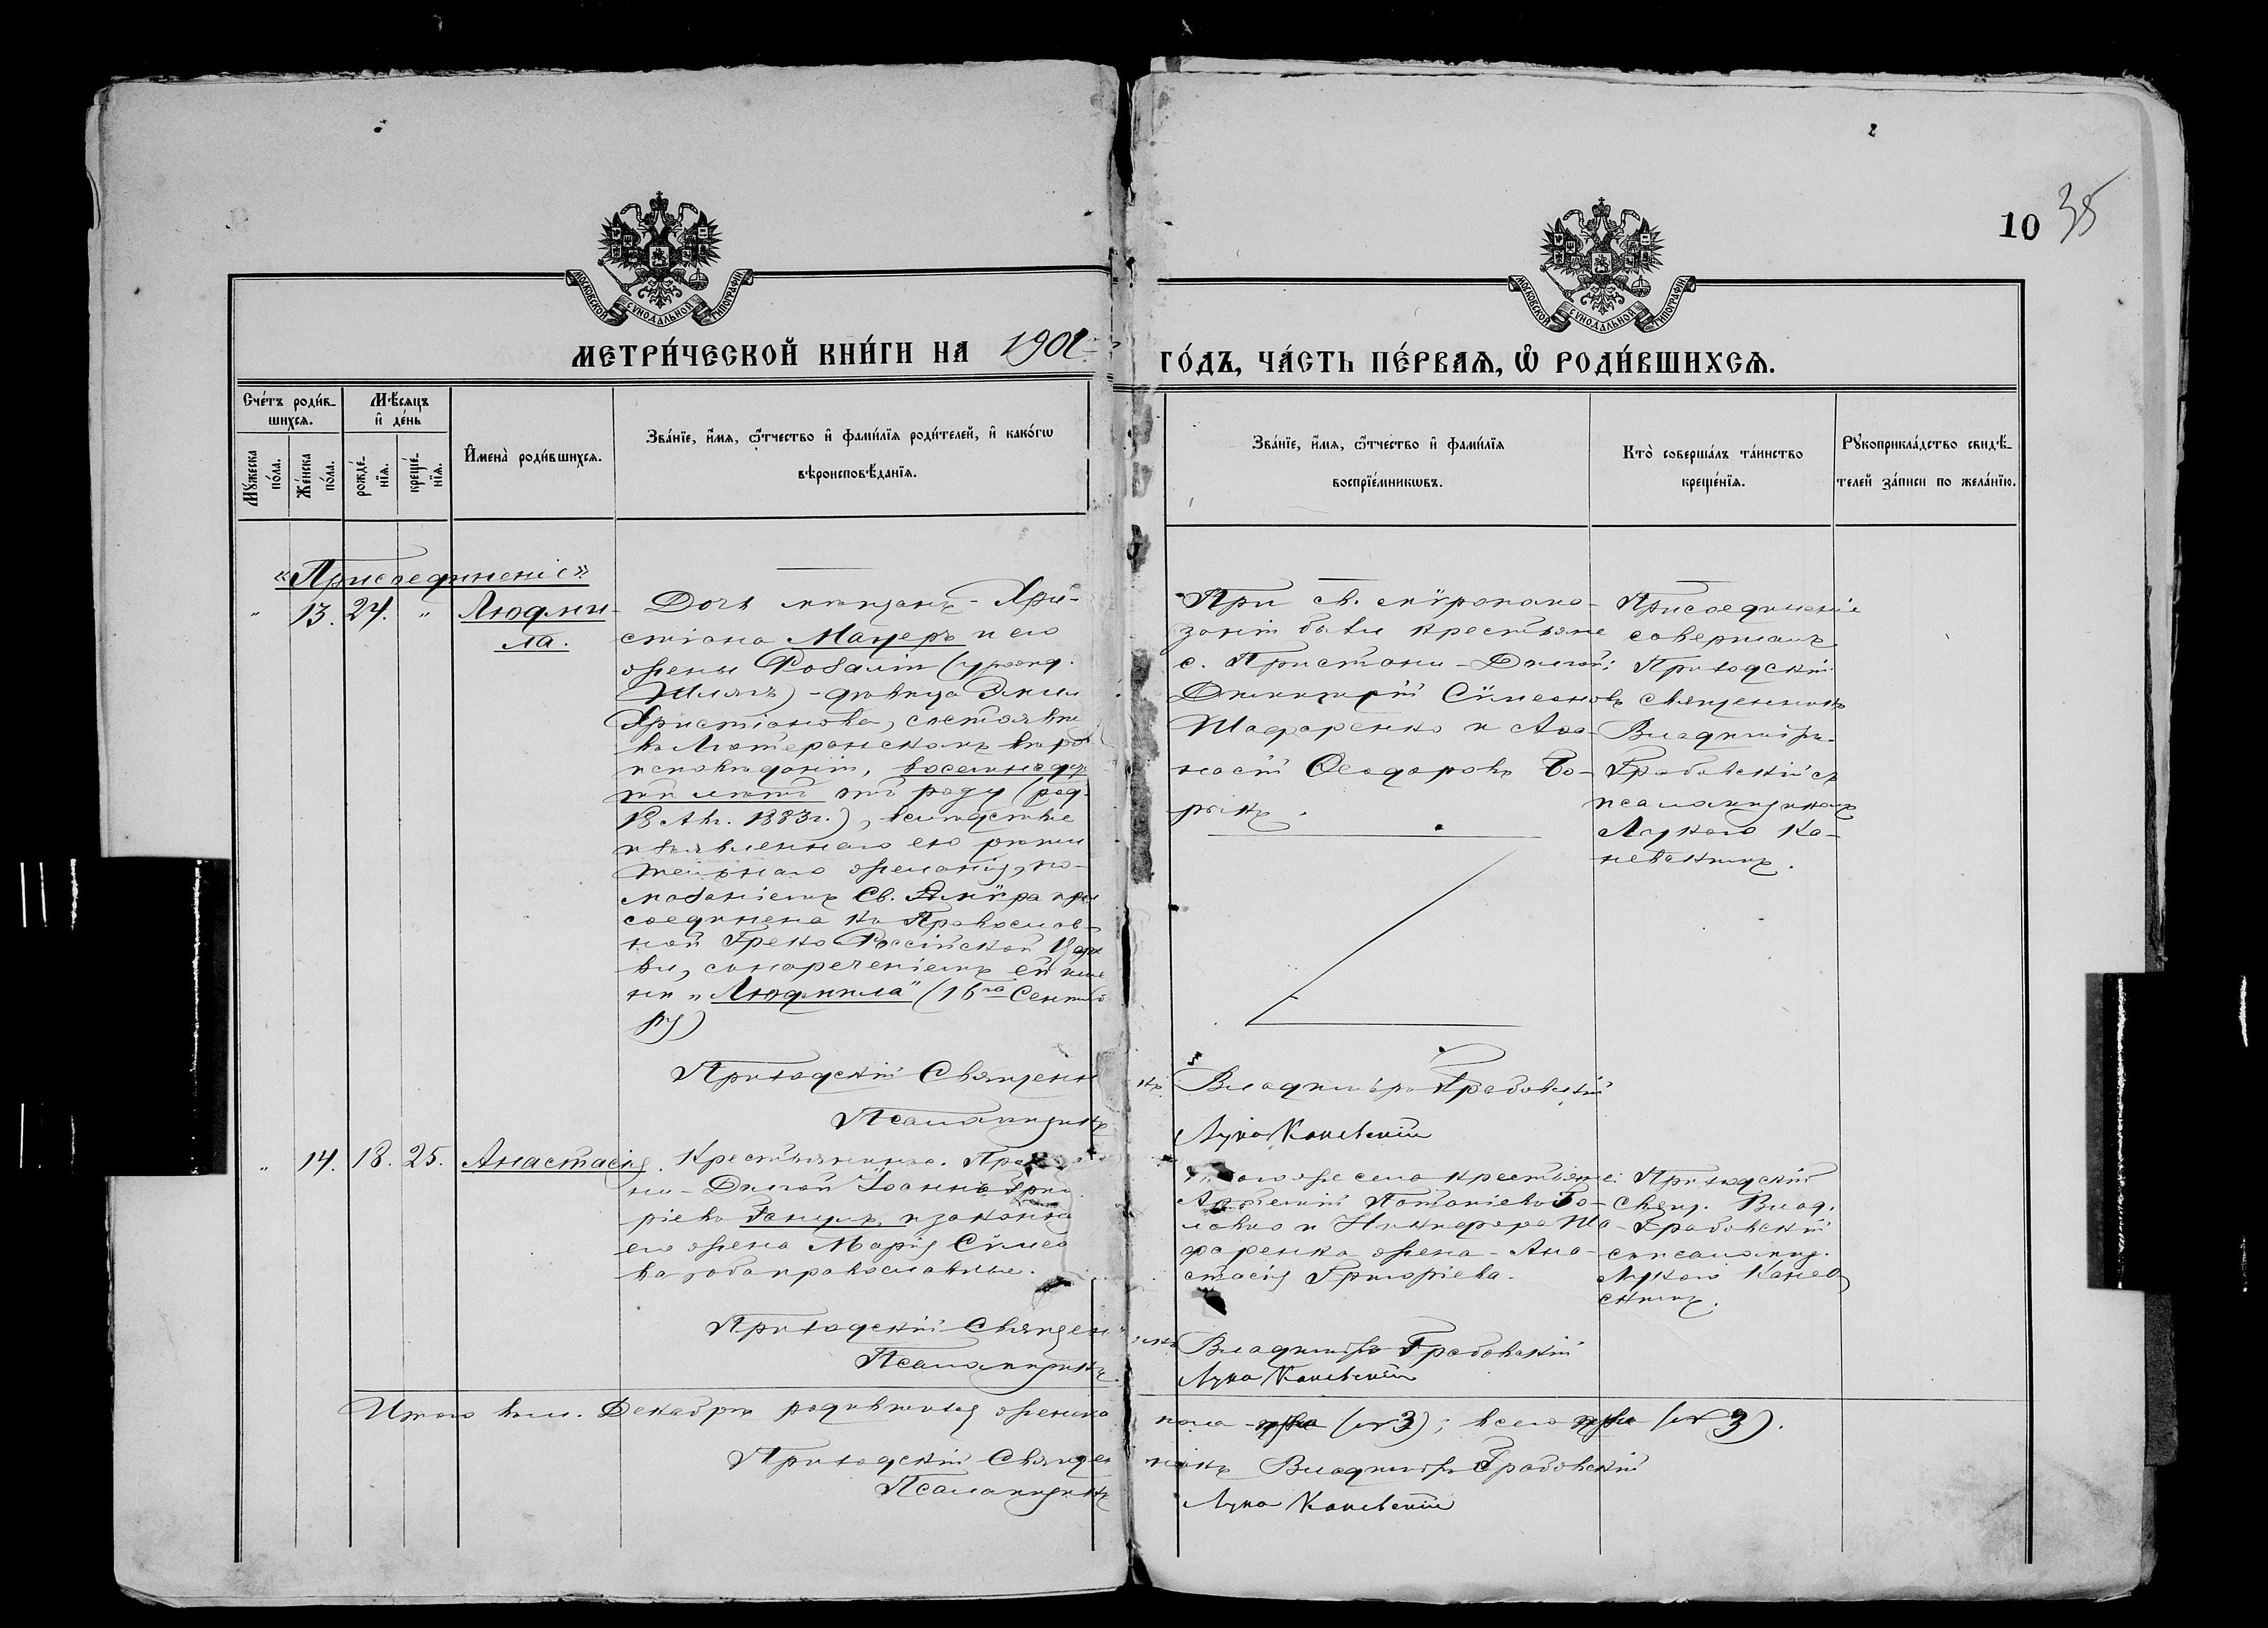 10 35
МОСКОВСКОЙ СѴНОДАЛЬНОЙ ТИПОГРАФІИ
МОСКОВСКОЙ СѴНОДАЛЬНОЙ ТИПОГРАФІИ
МЕТРИ́ЧЕСКОЙ КНИ́ГИ НА 1901
ГО́ДЪ, ЧА́СТЬ ПЕ́РВАѦ, Ѡ҆ РОДИ́ВШИХСѦ.
Сче́тъ роди́в-
шихсѧ.
Мꙋжеска по́ла.
Же́нска по́ла.
Мѣ́сѧцъ
и҆ де́нь
рожде́-
нїѧ.
креще́-
нїѧ.
И҆мена̀ роди́вшихсѧ.
Зва́нїе, и҆́мѧ, ѻ҆́тчество и҆ фами́лїѧ роди́телей, и҆ како́гѡ
вѣроисповѣ́данїѧ.
Зва́нїе, и҆́мѧ, ѻ҆́тчество и҆ фами́лїѧ
воспрїе́мникѡвъ.
Кто̀ соверша́лъ та́инство
креще́нїѧ.
Рꙋкоприкла́дство свидѣ́-
телей за́писи по жела́нїю.
«Присоединеніе»
„ 13. 24. „ Людми-
ла.
Дочь мѣщанъ - Хри-
стіана Мацеръ и его
жены Розаліи (урожд.
) - дѣвица Эмил
Христіанова, состоявш
въ Лютеранскомъ вѣро
исповѣданіи, восемнадц
ти лѣтъ отъ роду (род.
18 Ав. 1883 г.), вслѣдствіе
изъявленнаго ею рѣши
тельнаго желанія, по-
мазаніемъ Св. мѵра при
соединена къ Православ-
ной Греко Россійской Церк
ви, съ нареченіемъ ей име
ни „Людмила" (16го Сентяб
ря)
При св. мѵропома-
заніи были крестьяне
с. Пристани-Долгой:
Димитрій Сѵмеоновъ
Шафаренко и Аѳа-
насій Ѳеодоровъ Бо-
рыкъ.
Присоединеніе
совершалъ
Приходскій
священникъ
Владиміръ
Грабовскій съ
псаломщикомъ
Лукою Ка-
невскимъ.
Приходскій Священникъ Владиміръ Грабовскій
Псаломщикъ Лука Каневскій
„ 14. 18. 25. Анастасія.
Крестьянинъ с. При
ни-Долгой Іоаннъ Григо
ріевъ и законная
его жена Марія Сѵмео
ва, оба православные.
того же села крестьяне:
Потапіевъ Го-
ловко и Никифора Ша-
фаренка жена - Ана-
стасія Григоріева.
Приходскій
Свящ. Влад.
Грабовскій
съ псаломщ.
Лукою Канев
скимъ.
Приходскій Священникъ Владиміръ Грабовскій
Псаломщикъ Лука Каневскій
Итого въ м. Декабрѣ родившихся женска пола - три (№ 3); всего три (№ 3).
Приходскій Священникъ Владиміръ Грабовскій
Псаломщикъ Лука Каневскій